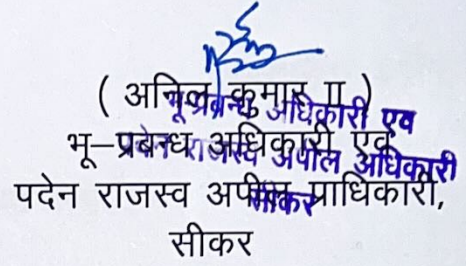 ( अनिल कुमार II )
भू-प्रबन्ध अधिकारी एवं
पदेन राजस्व अपील प्राधिकारी,
सीकर
भू-प्रबन्ध अधिकारी एवं
पदेन राजस्व अपील अधिकारी
सीकर